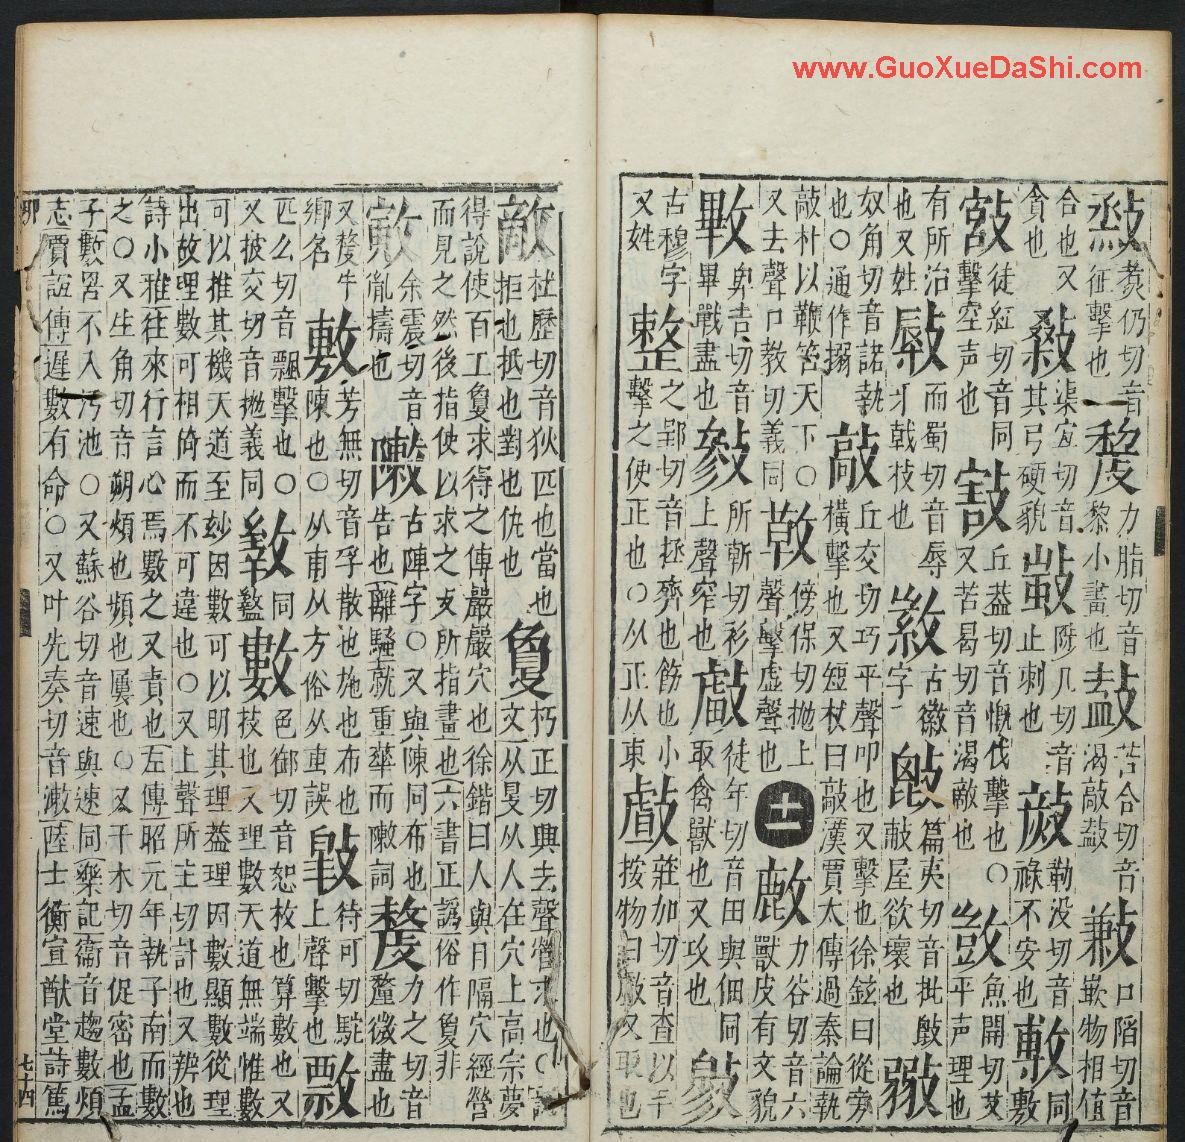 www.GuoXueDaShi.com
蒸仍切音征擊也
力脂切音黎小畫也
苦合切音渴敲
口陷切音歉物相值
合也又渠宜切音
貪也
其弓硬貌
陟几切音止刺也
勒没切音祿不安也
同敷
徒紅切音同擊空声也
丘葢切音慨伐擊也〇又苦曷切音渴敵也
魚開切艾平声理也
有所治也又姓
而蜀切音辱
牙戟技也
古徽字
篇夷切音批毀也敲屋欲壞也
奴角切音諾執也〇通作搦
敲 丘交切巧平聲叩也又擊也徐鉉曰從旁橫擊也又短杖曰敲漢賈太傅過秦論執
敲朴以鞭笞天下〇又去聲口教切義同
傍保切拋上聲擊虛聲也
十一
力谷切音六獸皮有文貌
卑吉切音畢戰盡也
所斬切衫上聲穽也
徒年切音田與佃同取禽獸也又攻也
古穆字又姓
整 之郢切音拯齊也飭也小擊之使正也〇从正从東
莊加切音查以手按物曰
又取也
敵 杜歷切音狄匹也當也拒也抵也對也仇也
敻 朽正切與去聲營求也〇說文从旻从人在穴上高宗夢
得說使百工敻求得之傳嚴嚴穴也徐鍇曰人與目隔穴經營
而見之然後指使以求之攴所指畫也六書正譌俗作敻非
余震切音胤擣也
敶 古陣字〇又與陳同布也告也離騷就重華而敶詞
力之切音釐微畫也
又氂牛
鄉名
敷 芳無切音孚散也施也布也陳也〇从甫从方俗从寸誤
待可切駝上聲擊也
匹么切音飄擊也〇又披交切音拋義同
同
數 色御切音恕枚也算數也又技也又理數天道無端惟數
可以推其機天道至玅因數可以明其理葢理因數顯數從理
出故理數可相倚而不可違也〇又上聲所主切計也又辨也
詩小雅往來行言心焉數之又責也左傳昭元年執子南而數
之〇又生角切音朔煩也頻也屢也〇又千木切音促密也孟
子數罟不入汚池〇又蘇谷切音速與速同樂記衞音趨數煩
志賈誼傳遲數有命〇又叶先奏切音潄陸士衡宣猷堂詩篤
七十四